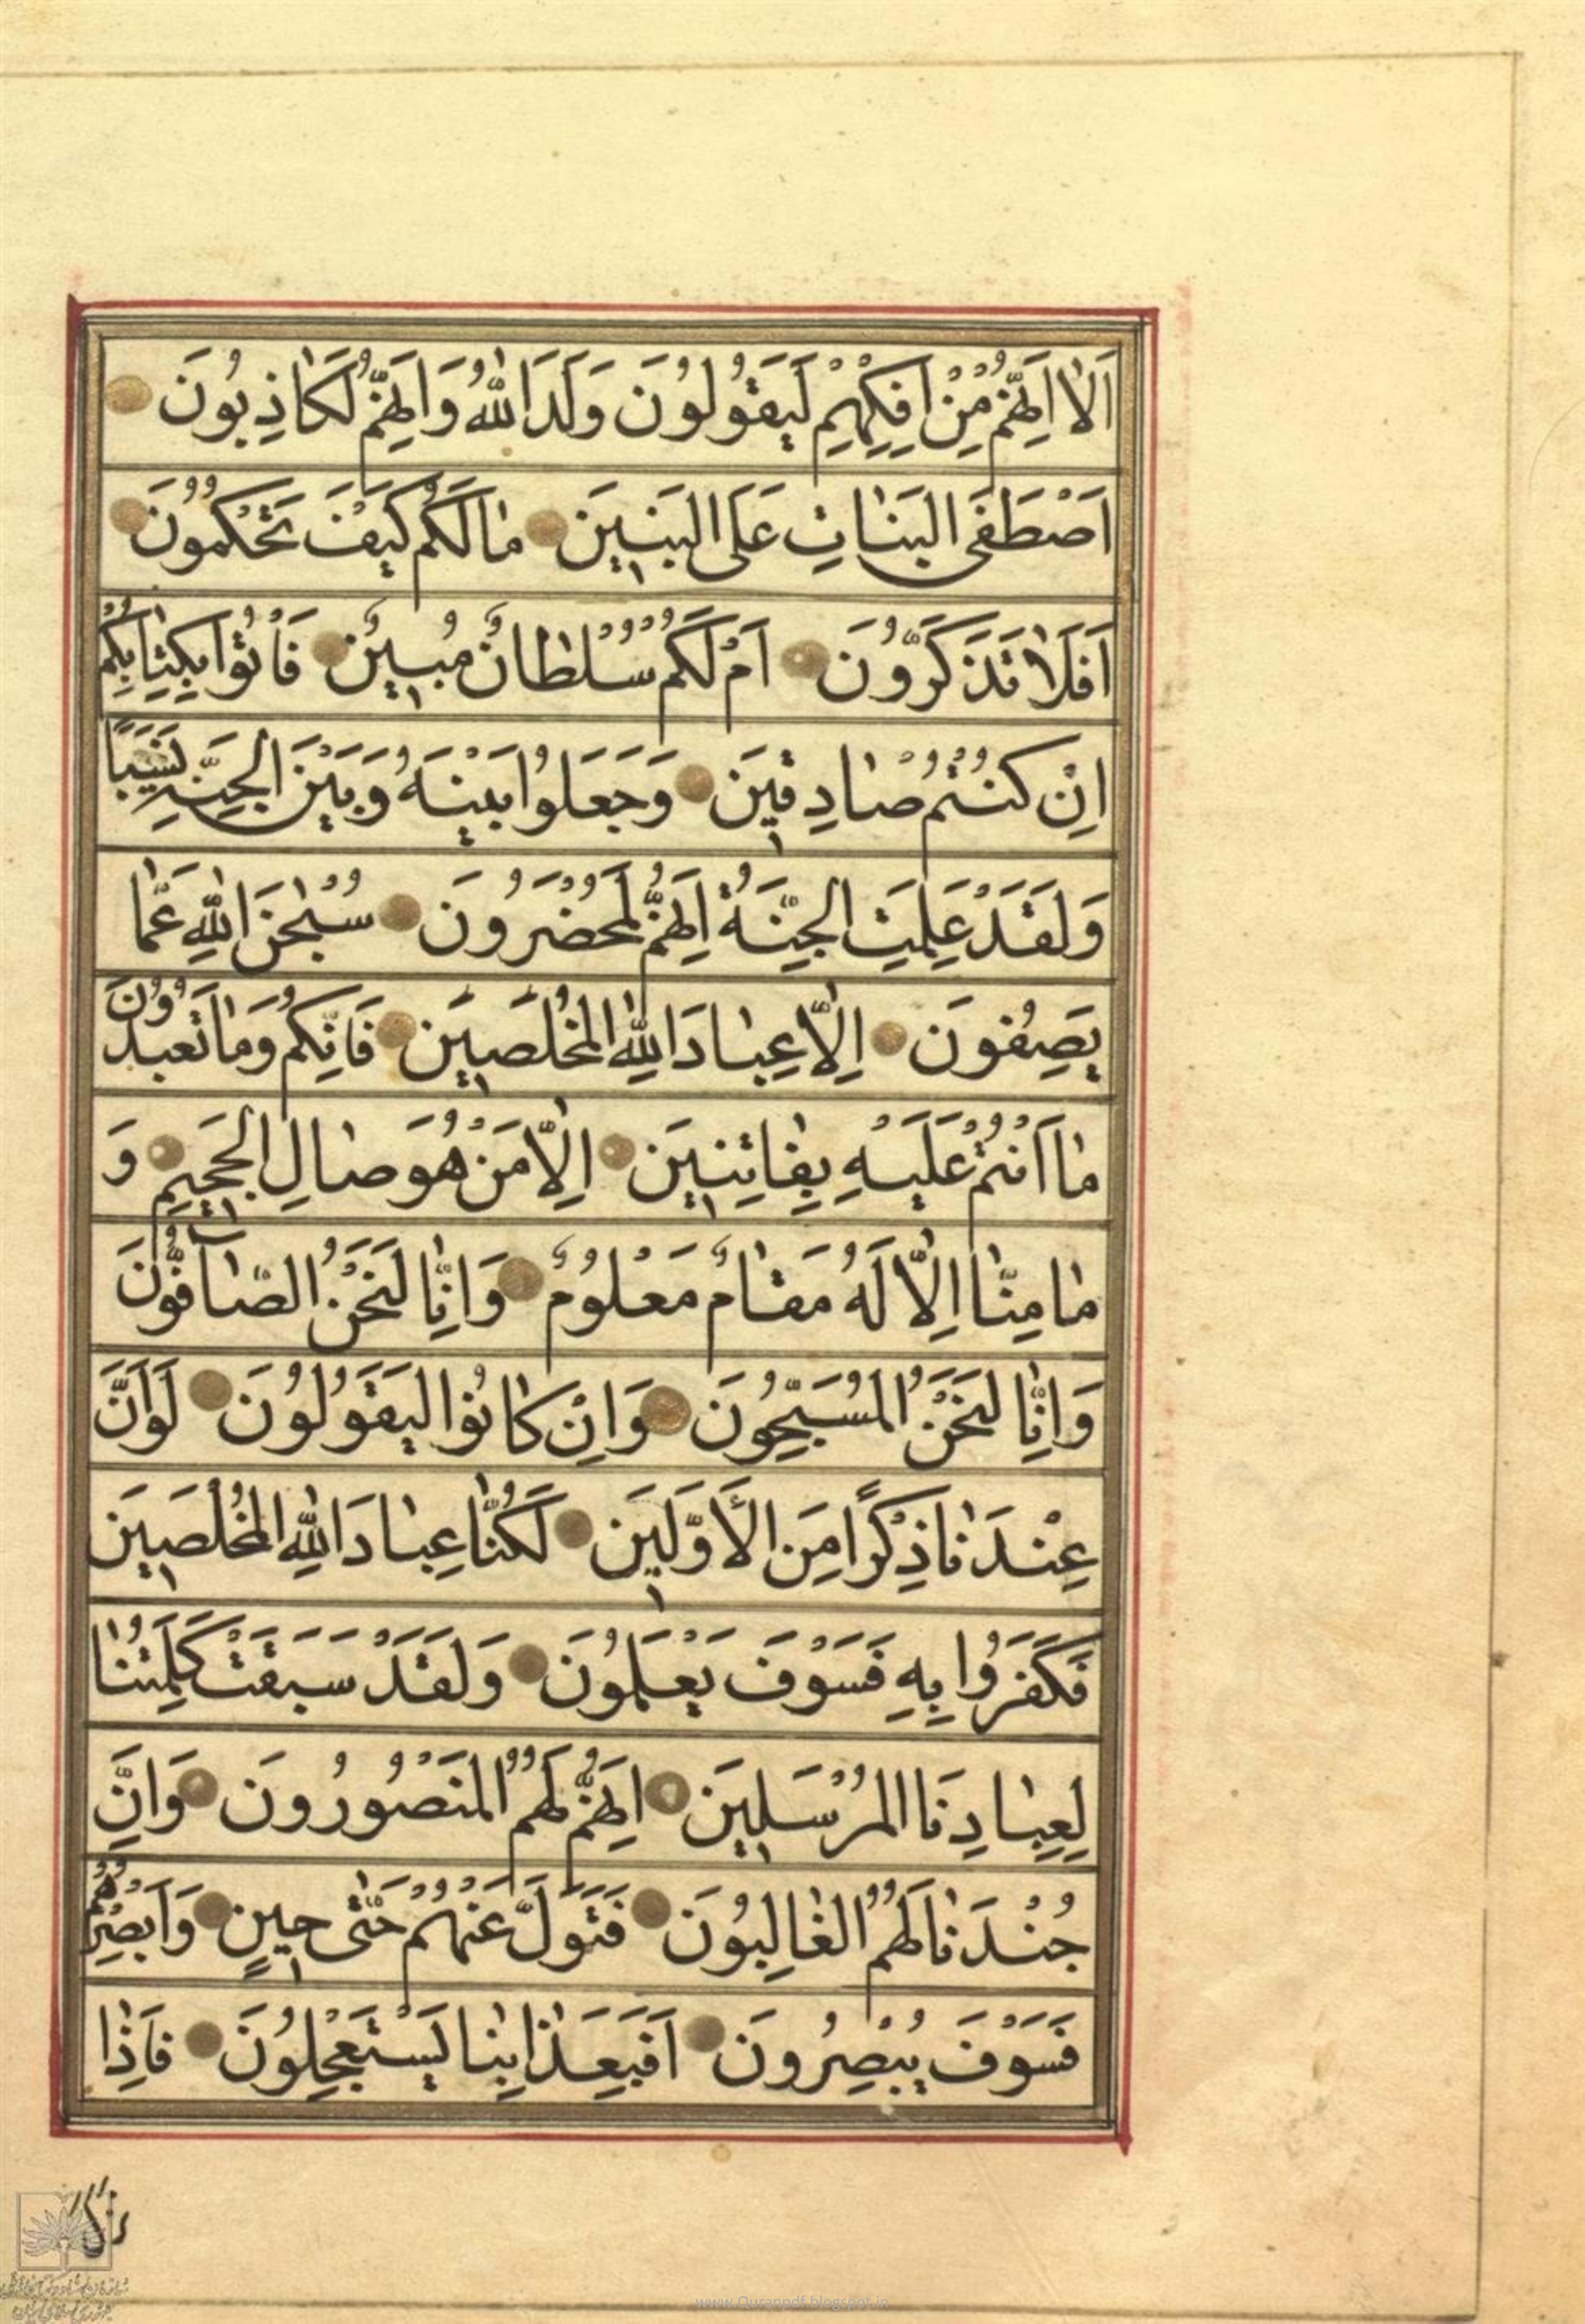 اَلٰا اِنَّهُمْ مِنْ اِفْكِهِمْ لَيَقُولُونَ وَلَدَ اللّٰهُ وَاِنَّهُمْ لَكٰاذِبُونَ
اَصْطَفَى الْبَنٰاتِ عَلَى الْبَنِينَ مٰا لَكُمْ كَيْفَ تَحْكُمُونَ
اَفَلٰا تَذَكَّرُونَ اَمْ لَكُمْ سُلْطٰانٌ مُبِينٌ فَأْتُوا بِكِتٰابِكُمْ
اِنْ كُنْتُمْ صٰادِقِينَ وَجَعَلُوا بَيْنَهُ وَبَيْنَ الْجِنَّةِ نَسَبًا
وَلَقَدْ عَلِمَتِ الْجِنَّةُ اِنَّهُمْ لَمُحْضَرُونَ سُبْحٰنَ اللّٰهِ عَمّٰا
يَصِفُونَ اِلّٰا عِبٰادَ اللّٰهِ الْمُخْلَصِينَ فَاِنَّكُمْ وَمٰا تَعْبُدُونَ
مٰا اَنْتُمْ عَلَيْهِ بِفٰاتِنِينَ اِلّٰا مَنْ هُوَ صٰالِ الْجَحِيمِ وَ
مٰا مِنّٰا اِلّٰا لَهُ مَقٰامٌ مَعْلُومٌ وَاِنّٰا لَنَحْنُ الصّٰافُّونَ
وَاِنّٰا لَنَحْنُ الْمُسَبِّحُونَ وَاِنْ كٰانُوا لَيَقُولُونَ لَوْ اَنَّ
عِنْدَنٰا ذِكْرًا مِنَ الْأَوَّلِينَ لَكُنّٰا عِبٰادَ اللّٰهِ الْمُخْلَصِينَ
فَكَفَرُوا بِهِ فَسَوْفَ يَعْلَمُونَ وَلَقَدْ سَبَقَتْ كَلِمَتُنٰا
لِعِبٰادِنَا الْمُرْسَلِينَ اِنَّهُمْ لَهُمُ الْمَنْصُورُونَ وَاِنَّ
جُنْدَنٰا لَهُمُ الْغٰالِبُونَ فَتَوَلَّ عَنْهُمْ حَتّٰى حِينٍ وَاَبْصِرْهُمْ
فَسَوْفَ يُبْصِرُونَ اَفَبِعَذٰابِنٰا يَسْتَعْجِلُونَ فَاِذٰا
www.Quranpdf.blogspot.in